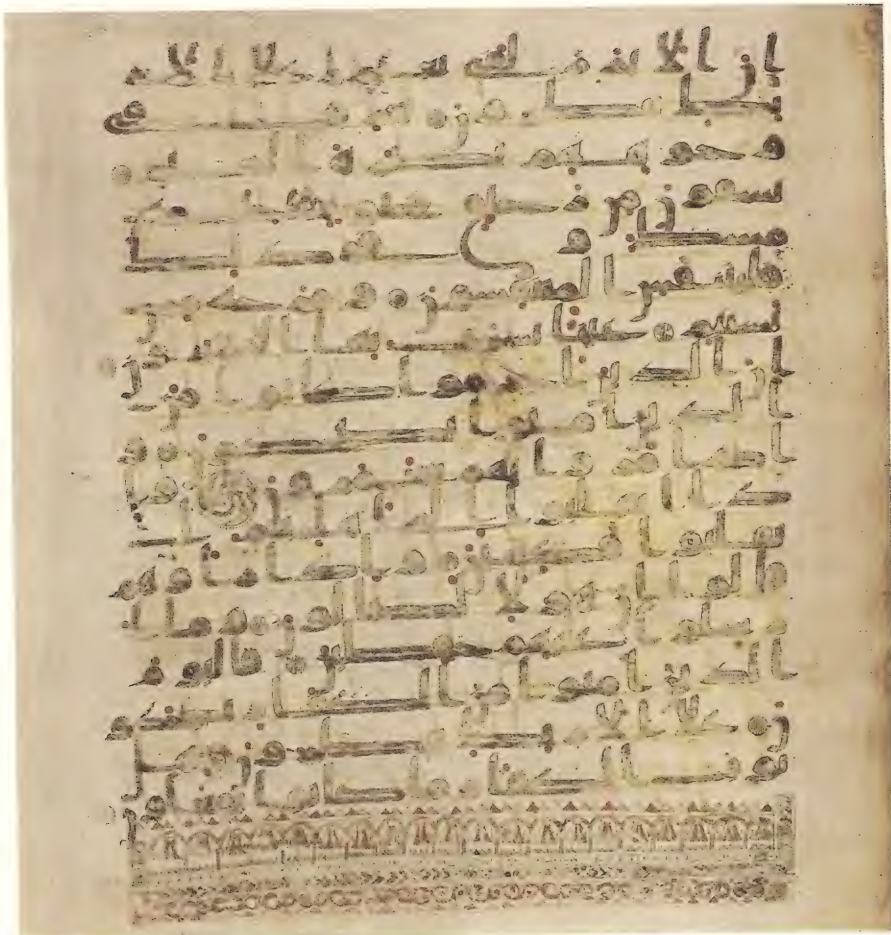 ان الابرر لفى نعيم على الارا
ئك ينظرون تعرف فى
وجوههم نضره النعيم
يسقون من رحيق مختوم ختمه
مسك وفى ذلك
فليتنفس المتنفسون ومزاجه من
تسنيم عينا يشرب بها المقربون
ان الذين اجرموا كانوا من
الذين امنوا يضحكون و
اذا مروا بهم يتغامزون واذا
انقلبوا الى اهلهم ا
نقلبوا فكهين واذا راوهم
قالوا ان هولا لضالون وما ا
رسلوا عليهم حفظين فاليوم
الذين امنوا من الكفار يضحكو
ن على الارائك ينظرون هل
ثوب الكفار ما كانوا يفعلون